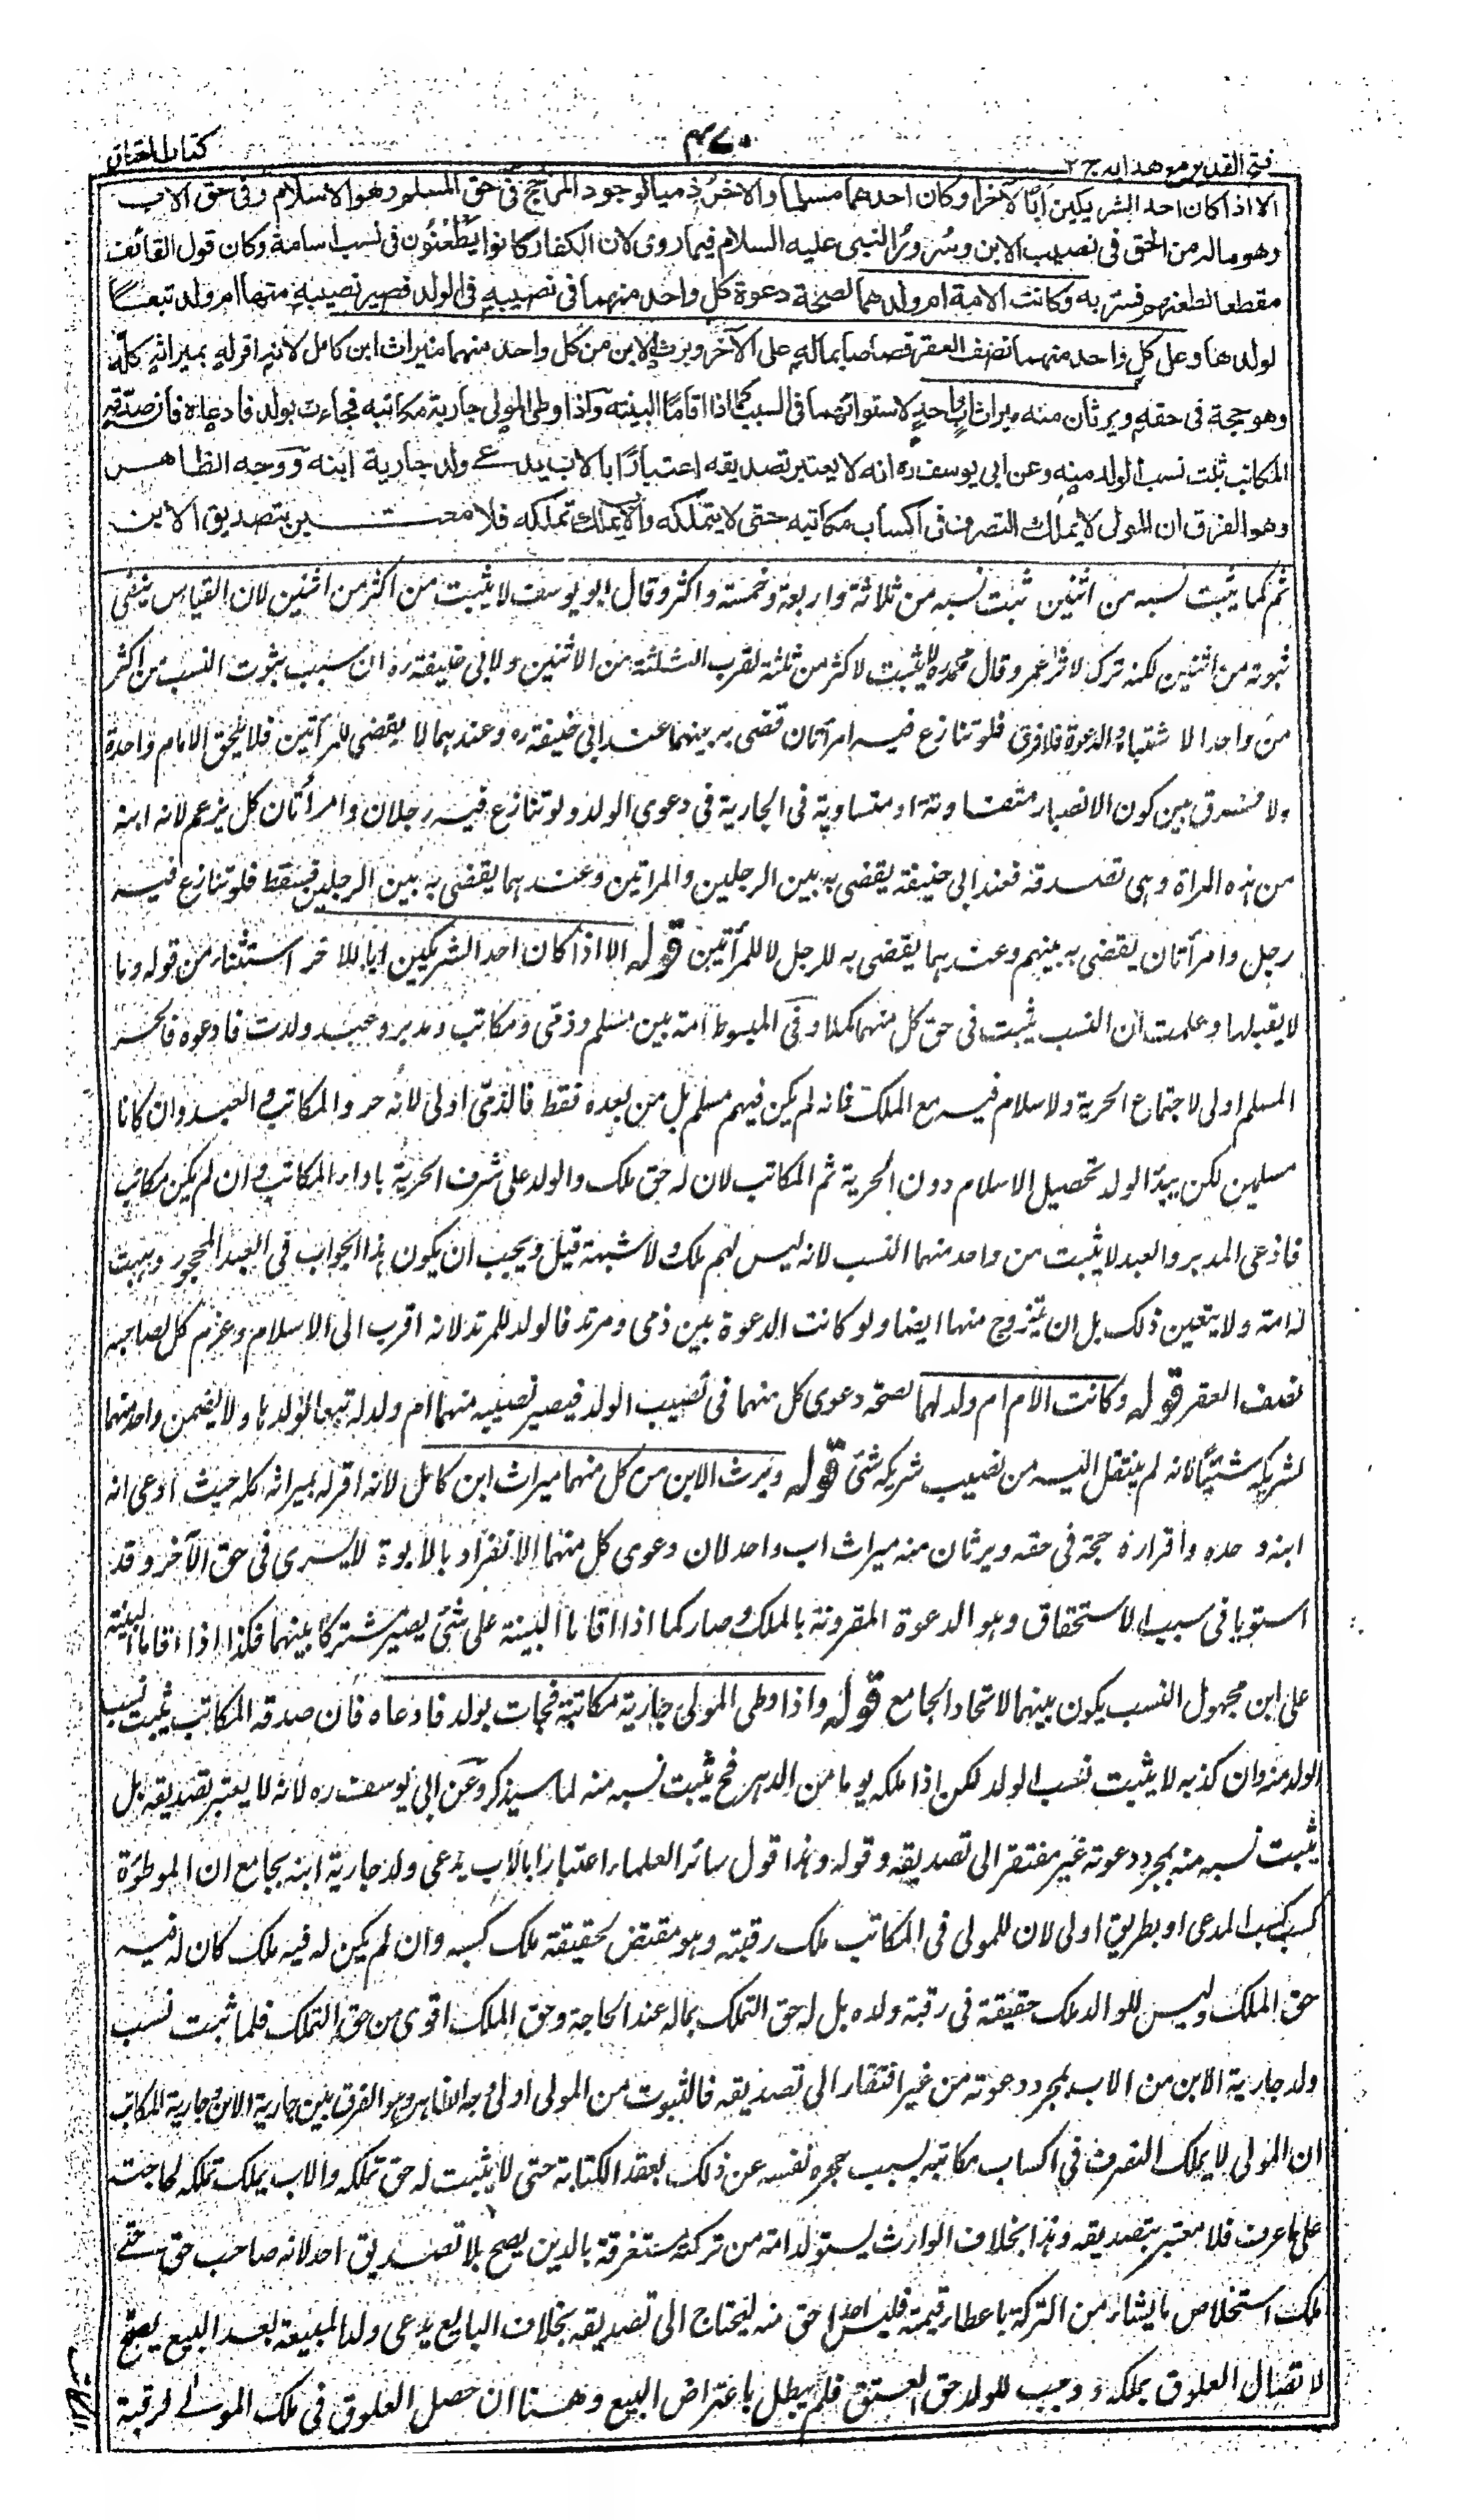 فتح القدير مع هدايه ج ٢
٤٧٠
كتاب العتاق
الا اذا كان احد الشريكين ابًا لآخر او كان احدهما مسلما والاخر ذميا لوجود المرجح فى حق المسلم وهو الاسلام وفى حق الاب
وهو ماله من الحق فى نصيب الابن وسرور النبى عليه السلام فيما روى لان الكفار كانوا يطعنون فى نسب اسامة وكان قول القائف
مقطعا لطعنهم فسر به وكانت الامة ام ولد لهما لصحة دعوة كل واحد منهما فى نصيبه فى الولد فصير نصيبه منهما ام ولد تبعًا
لولدها وعلى كل واحد منهما نصف العقر قصاصا بماله على الآخر ويرث الابن من كل واحد منهما ميراث ابن كامل لانه اقر له بميراثه كله
وهو حجة فى حقه ويرثان منه ميراث اب واحد لاستوائهما فى السبب كما اذا اقاما البينة واذا وطى المولى جارية مكاتبه فجاءت بولد فادعاه فان صدقه
المكاتب ثبت نسب الولد منه وعن ابى يوسف ره انه لا يعتبر تصديقه اعتبارًا بالاب يدعى ولد جارية ابنه ووجه الظاهر
وهو الفرق ان المولى لا يملك التصرف فى اكساب مكاتبه حتى لا يتملكه والاب يملك تملكه فلا معتبر بتصديق الابن
ثم كما يثبت نسبه من اثنين ثبت نسبه من ثلاثة واربعة وخمسة واكثر وقال ابو يوسف لا يثبت من اكثر من اثنين لان القياس ينفى
ثبوته من اثنين لكنه ترك لاثر عمر وقال محمد ره لا يثبت لاكثر من ثلثة لقرب الثلثة من الاثنين ولابى حنيفة ره ان سبب ثبوت النسب من اكثر
من واحد الاشتباه والدعوة فلا فرق فلو تنازع فيه امرأتان قضى به بينهما عند ابى حنيفة ره وعندهما لا يقضى للمرأتين فلا يلحق الا بام واحدة
ولا فرق بين كون الانصباء متفاوتة او متساوية فى الجارية فى دعوى الولد ولو تنازع فيه رجلان وامرأتان كل يزعم لانه ابنه
من هذه المرأة وهى تصدقه فعند ابى حنيفة يقضى به بين الرجلين والمرأتين وعندهما يقضى به بين الرجلين فقط فلو تنازع فيه
رجل وامرأتان يقضى به بينهم وعندهما يقضى به للرجل لا للمرأتين قوله الا اذا كان احد الشريكين ابا للاخر استثناء من قوله وما
لا يقبلها وعلمت ان النسب يثبت فى حق كل منهما كملا وفى المبسوط امة بين مسلم وذمى ومكاتب ومدبر وعبد ولدت فادعوه فالحر
المسلم اولى لاجتماع الحرية والاسلام فيه مع الملك فانه لم يكن فيهم مسلم بل من بعده فقط فالذمى اولى لانه حر والمكاتب والعبد وان كانا
مسلمين لكن بيد الولد تحصيل الاسلام دون الحرية ثم المكاتب لان له حق ملك والولد على شرف الحرية باداء المكاتب وان لم يكن مكاتب
فادعى المدبر والعبد لا يثبت من واحد منهما النسب لانه ليس لهم ملك ولا شبهة قيل ويجب ان يكون هذا الجواب فى العبد المحجور وهبت
له امة ولا يتعين ذلك بل ان يتزوج منها ايضا ولو كانت الدعوة بين ذمى ومرتد فالولد للمرتد لانه اقرب الى الاسلام وغرم كل لصاحبه
نصف العقر قوله وكانت الام ام ولد لهما لصحة دعوى كل منهما فى نصيب الولد فيصير نصيبه منهما ام ولد له تبعا لولدها ولا يضمن واحد منهما
لشريكه شيئًا لانه لم ينتقل اليه من نصيب شريكه شئ قوله ويرث الابن من كل منهما ميراث ابن كامل لانه اقر له بميراثه كله حيث ادعى انه
ابنه وحده واقراره حجة فى حقه ويرثان منه ميراث اب واحد لان دعوى كل منهما الانفراد بالابوة لا يسرى فى حق الآخر وقد
استويا فى سبب الاستحقاق وهو الدعوة المقرونة بالملك وصار كما اذا اقاما البينة على شئ يصير مشتركا بينهما فكذا اذا اقاما البينة
على ابن مجهول النسب يكون بينهما لاتحاد الجامع قوله واذا وطى المولى جارية مكاتبه فجات بولد فادعاه فان صدقه المكاتب يثبت نسب
الولد منه وان كذبه لا يثبت نسب الولد لكن اذا ملكه يوما من الدهر فح يثبت نسبه منه لما سيذكر وعن ابى يوسف ره لانه لا يعتبر تصديقه بل
يثبت نسبه منه بمجرد دعوته غير مفتقر الى تصديقه وقوله وهذا قول سائر العلماء اعتبارا بالاب يدعى ولد جارية ابنه بجامع ان الموطؤة
كسب كسب المدعى او بطريق اولى لان للمولى فى المكاتب ملك رقبته وهو مقتض لحقيقة ملك كسبه وان لم يكن له فيه ملك كان له فيه
حق الملك وليس للوالد ملك حقيقة فى رقبة ولده بل له حق التملك بماله عند الحاجة وحق الملك اقوى من حق التملك فلما ثبت نسب
ولد جارية الابن من الاب بمجرد دعوته من غير افتقار الى تصديقه فالثبوت من المولى اولى وجه الظاهر وهو الفرق بين جارية الابن وجارية المكاتب
ان المولى لا يملك التصرف فى اكساب مكاتبه بسبب حجره نفسه عن ذلك بعقد الكتابة حتى لا يثبت له حق تملكه والاب يملك تملكه لحاجته
على ما عرف فلا معتبر بتصديقه وهذا بخلاف الوارث يستولد امة من تركة مستغرقة بالدين يصح بلا تصديق احد لانه صاحب حق حتى
ملك استخلاص ما يشاء من التركة باعطاء قيمته فليس احد احق منه ليحتاج الى تصديقه بخلاف البايع يدعى ولد المبيعة بعد البيع يصح
لاتصال العلوق بملكه ووجب للولد حق العتق فلم يبطل باعتراض البيع وهنا ان حصل العلوق فى ملك المولى لرقبة